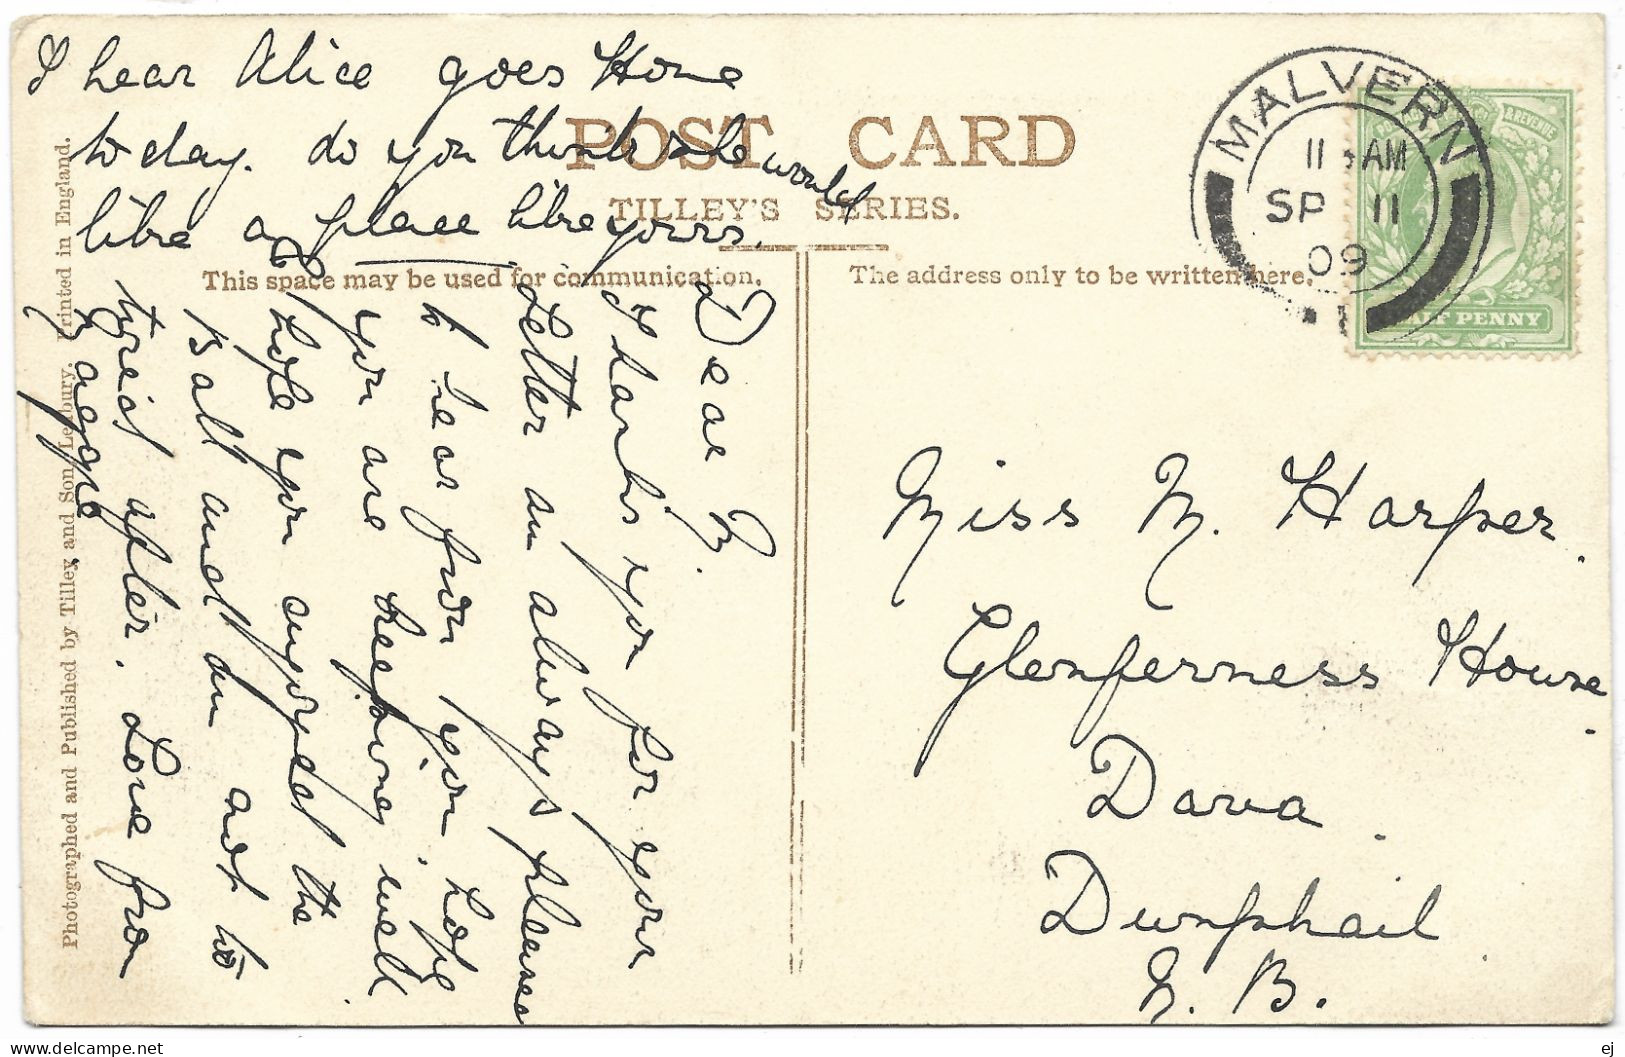 I hear Alice goes Home
to day. do you think she would
like a place like yours.
POST CARD
TILLEY'S SERIES.
This space may be used for communication.
The address only to be written here.
MALVERN
11 AM
SP 11
09
& REVENUE
HALF PENNY
Dear M.
Thanks you for your
Letter am always pleased
to hear from you hope
you are keeping well
hope you enjoyed the
Ball and am not to
tired after. Love from
Maggie
Miss M. Harper.
Glenferness House
Dava.
Dunphail
N. B.
Photographed and Published by Tilley and Son, Ledbury. Printed in England.
ej
delcampe.net